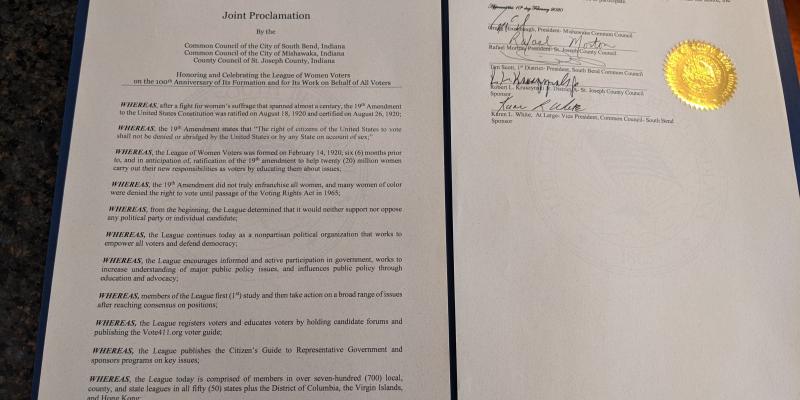 Joint Proclamation
By the
Common Council of the City of South Bend, Indiana
Common Council of the City of Mishawaka, Indiana
County Council of St. Joseph County, Indiana
Honoring and Celebrating the League of Women Voters
on the 100th Anniversary of Its Formation and for Its Work on Behalf of All Voters
WHEREAS, after a fight for women's suffrage that spanned almost a century, the 19th Amendment
to the United States Constitution was ratified on August 18, 1920 and certified on August 26, 1920;
WHEREAS, the 19th Amendment states that "The right of citizens of the United States to vote
shall not be denied or abridged by the United States or by any State on account of sex;"
WHEREAS, the League of Women Voters was formed on February 14, 1920, six (6) months prior
to, and in anticipation of, ratification of the 19th amendment to help twenty (20) million women
carry out their new responsibilities as voters by educating them about issues;
WHEREAS, the 19th Amendment did not truly enfranchise all women, and many women of color
were denied the right to vote until passage of the Voting Rights Act in 1965;
WHEREAS, from the beginning, the League determined that it would neither support nor oppose
any political party or individual candidate;
WHEREAS, the League continues today as a nonpartisan political organization that works to
empower all voters and defend democracy;
WHEREAS, the League encourages informed and active participation in government, works to
increase understanding of major public policy issues, and influences public policy through
education and advocacy;
WHEREAS, members of the League first (1st) study and then take action on a broad range of issues
after reaching consensus on positions;
WHEREAS, the League registers voters and educates voters by holding candidate forums and
publishing the Vote411.org voter guide;
WHEREAS, the League publishes the Citizen's Guide to Representative Government and
sponsors programs on key issues;
WHEREAS, the League today is comprised of members in over seven-hundred (700) local,
county, and state leagues in all fifty (50) states plus the District of Columbia, the Virgin Islands,
and Hong Kong;
participate.
10th day February 2020
President- Mishawaka Common Council
Rafael Morton
Rafael Morton, President- St. Joseph County Council
Tim Scott, 1st District- President, South Bend Common Council
Robert L. Kruszynski Jr. District - St. Joseph County Council
Sponsor
Karen L. White
Karen L. White, At Large- Vice President, Common Council- South Bend
Sponsor